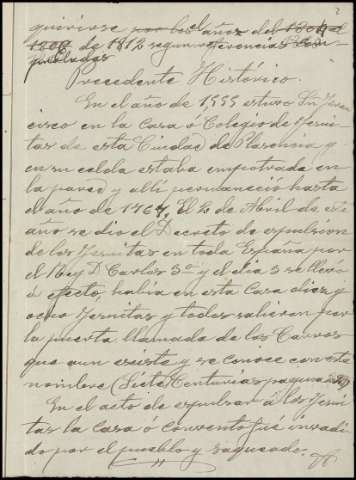 2
quirirse por los el años del 1807 al
1808 de 1812 segun referencias
Precedente Histórico.
En el año de 1555 estuvo Sn Fran
cisco en la Casa ó Colegio de Jesui
tas de esta Ciudad de Plasencia y
en su celda estaba empotrada en
la pared y alli permaneció hasta
el año de 1767. El 2 de Abril de este
año se dió el Decreto de expulsion
de los Jesuitas en toda España por
el Rey D. Carlos 3º y el dia 3 se llevó
á efecto, habia en esta Casa diez y
ocho Jesuitas y todos salieron por
la puerta llamada de los Carros
que aun existe y se conoce con este
nombre (Siete Centurias pagina
En el acto de expulsar á los Jesui
tas la Casa ó Convento fué invadi
do por el pueblo y saqueado.